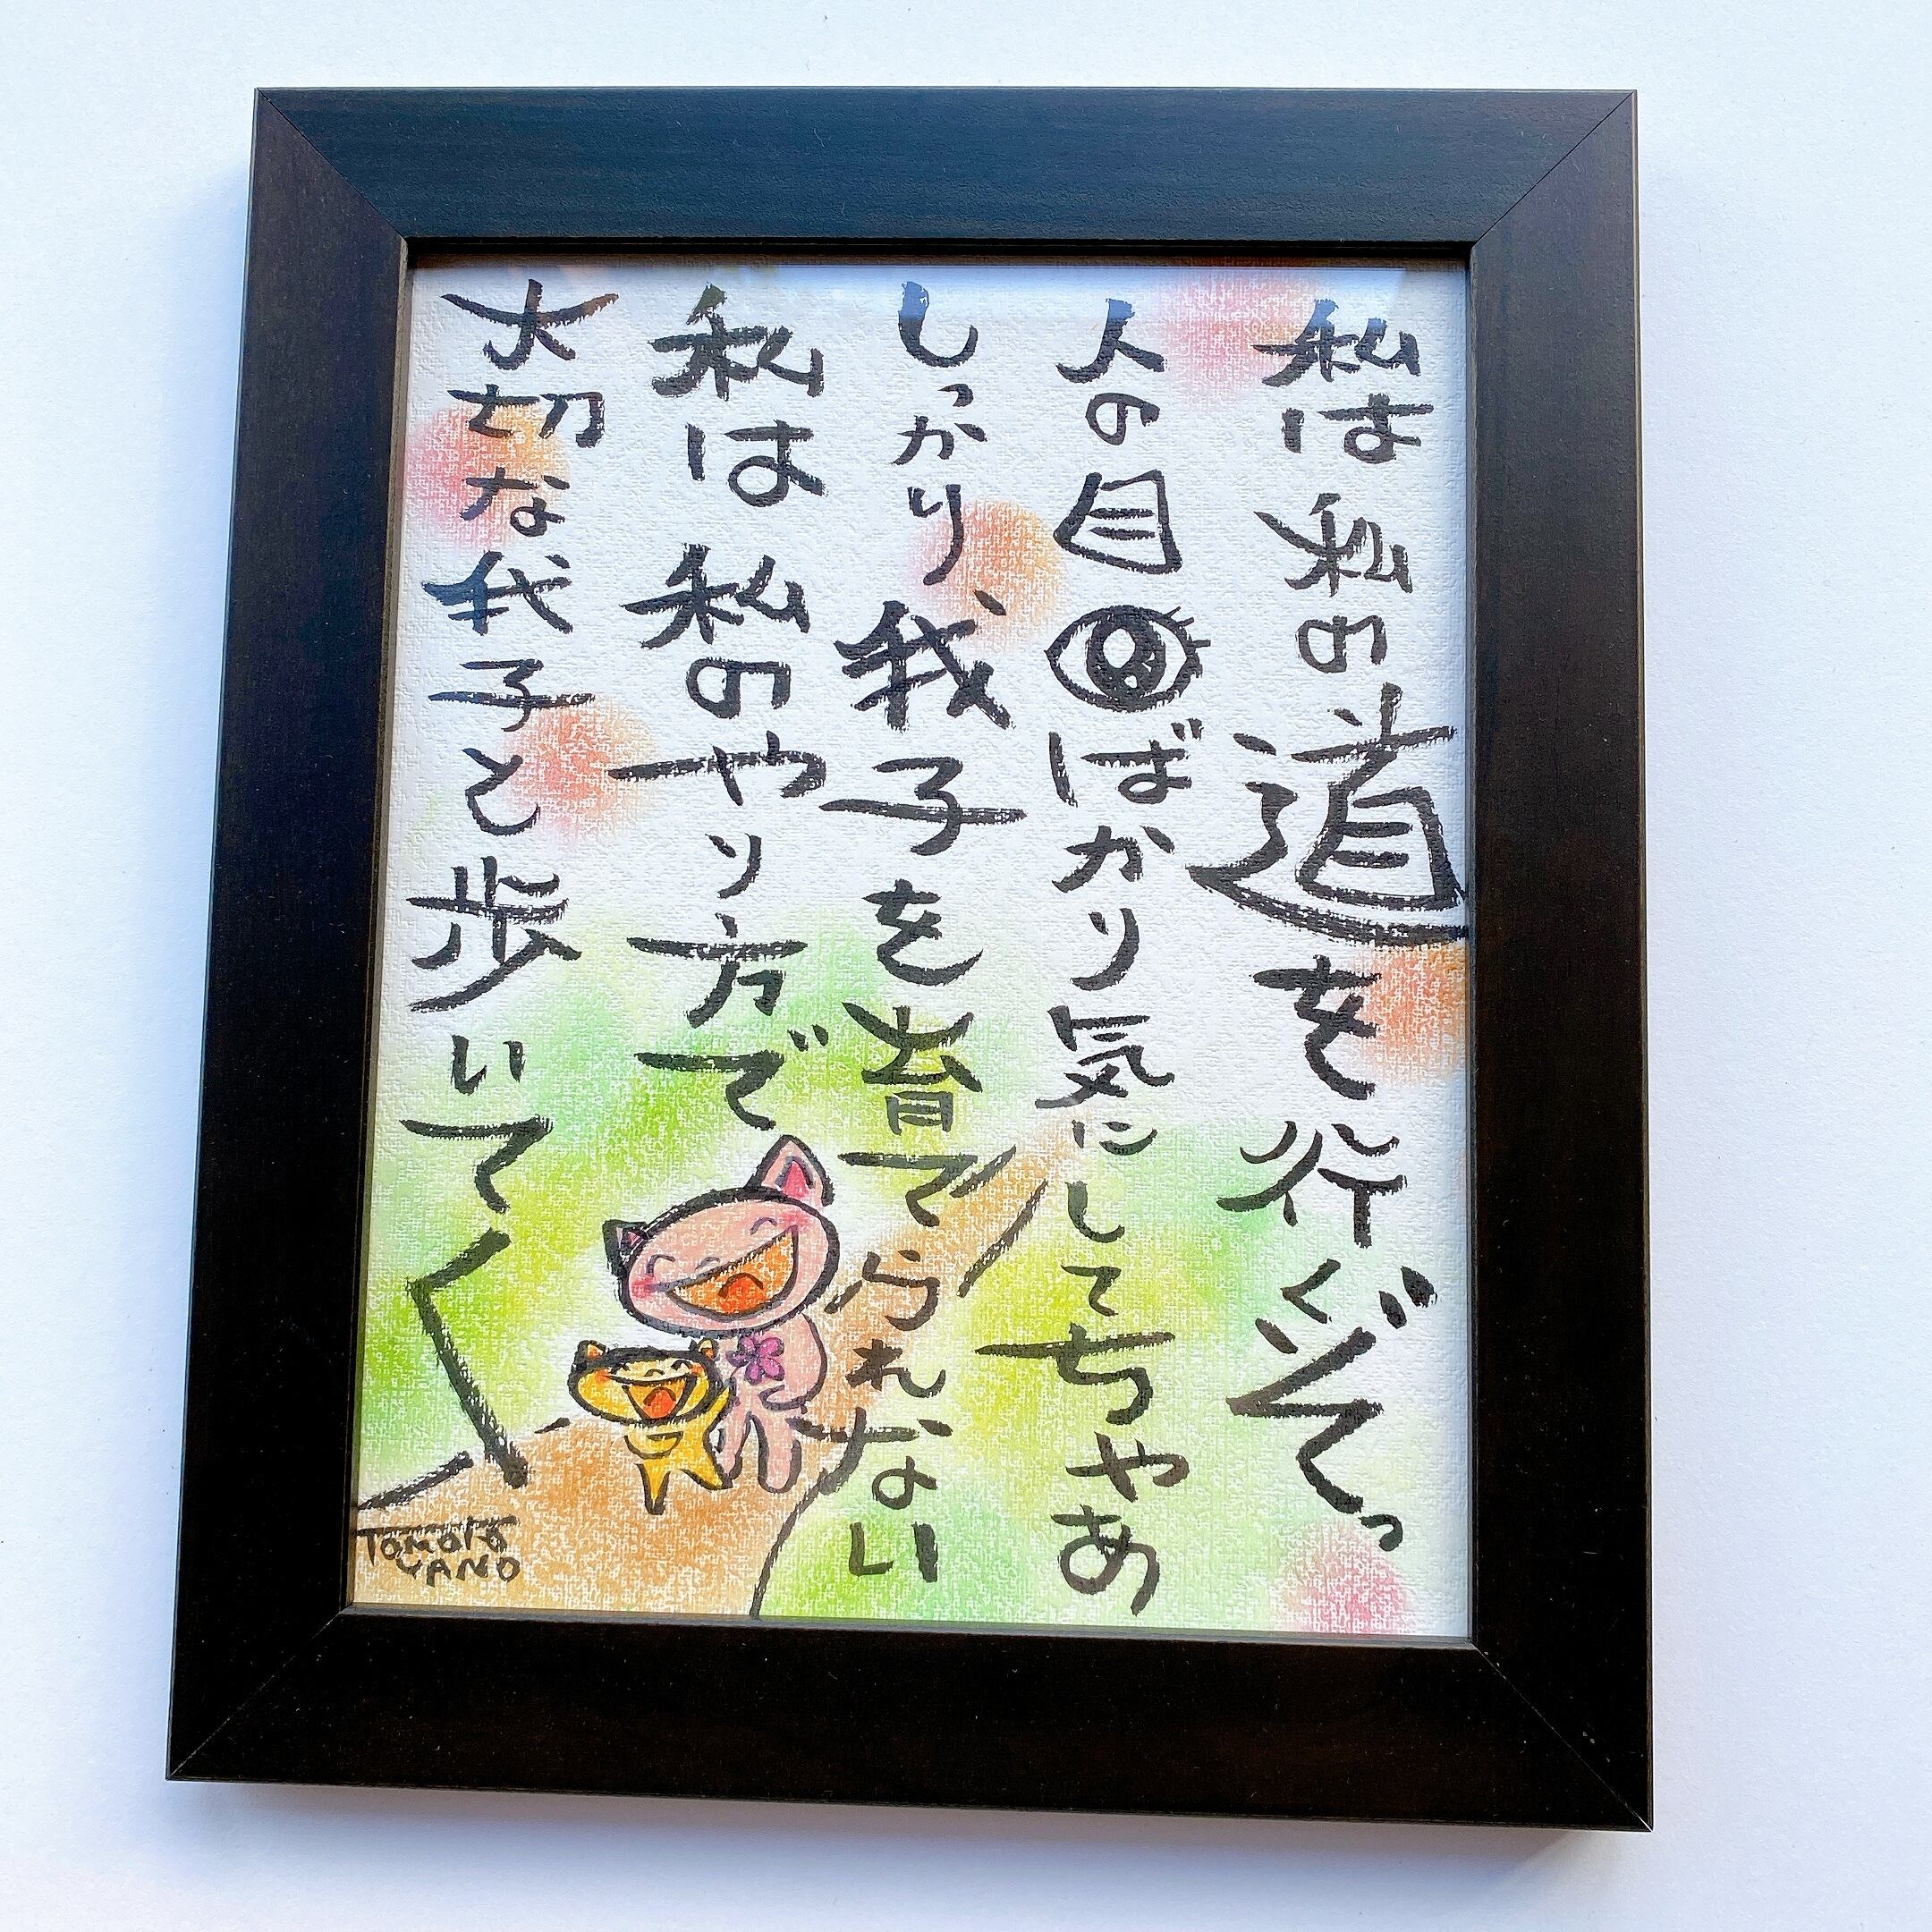 私は私の道を行くぞっ
人の目ばかり気にしてちゃあ
しっかり我子を育てられない
私は私のやり方で
大切な我子と歩いてく
TOMOKO YANO